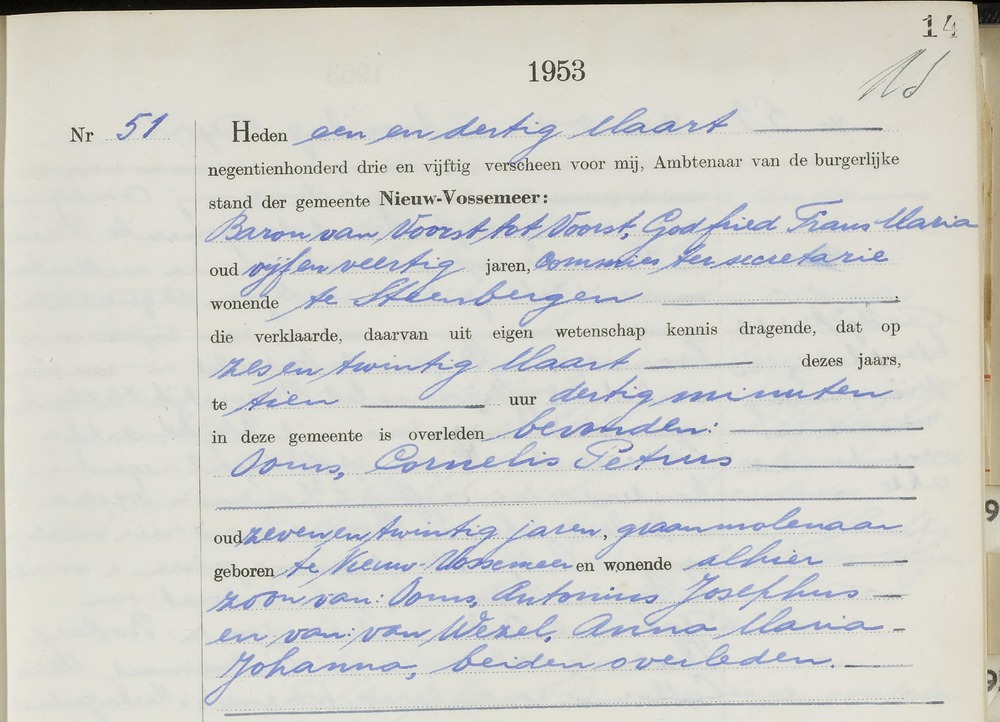 14
1953
Nr 51 Heden een en dertig Maart
negentienhonderd drie en vijftig verscheen voor mij, Ambtenaar van de burgerlijke
stand der gemeente Nieuw-Vossemeer:
Baron van Voorst tot Voorst, Godfried Frans Maria
oud vijfenveertig jaren, Commies ter secretarie
wonende te Steenbergen ,
die verklaarde, daarvan uit eigen wetenschap kennis dragende, dat op
zesentwintig Maart dezes jaars,
te tien uur dertig minuten
in deze gemeente is overleden bevonden:
Ooms, Cornelis Petrus
oud zevenentwintig jaren, graanmolenaar
geboren te Nieuw-Vossemeer en wonende alhier
zoon van: Ooms, Antonius Josephus
en van: van Wezel, Anna Maria
Johanna, beiden overleden.